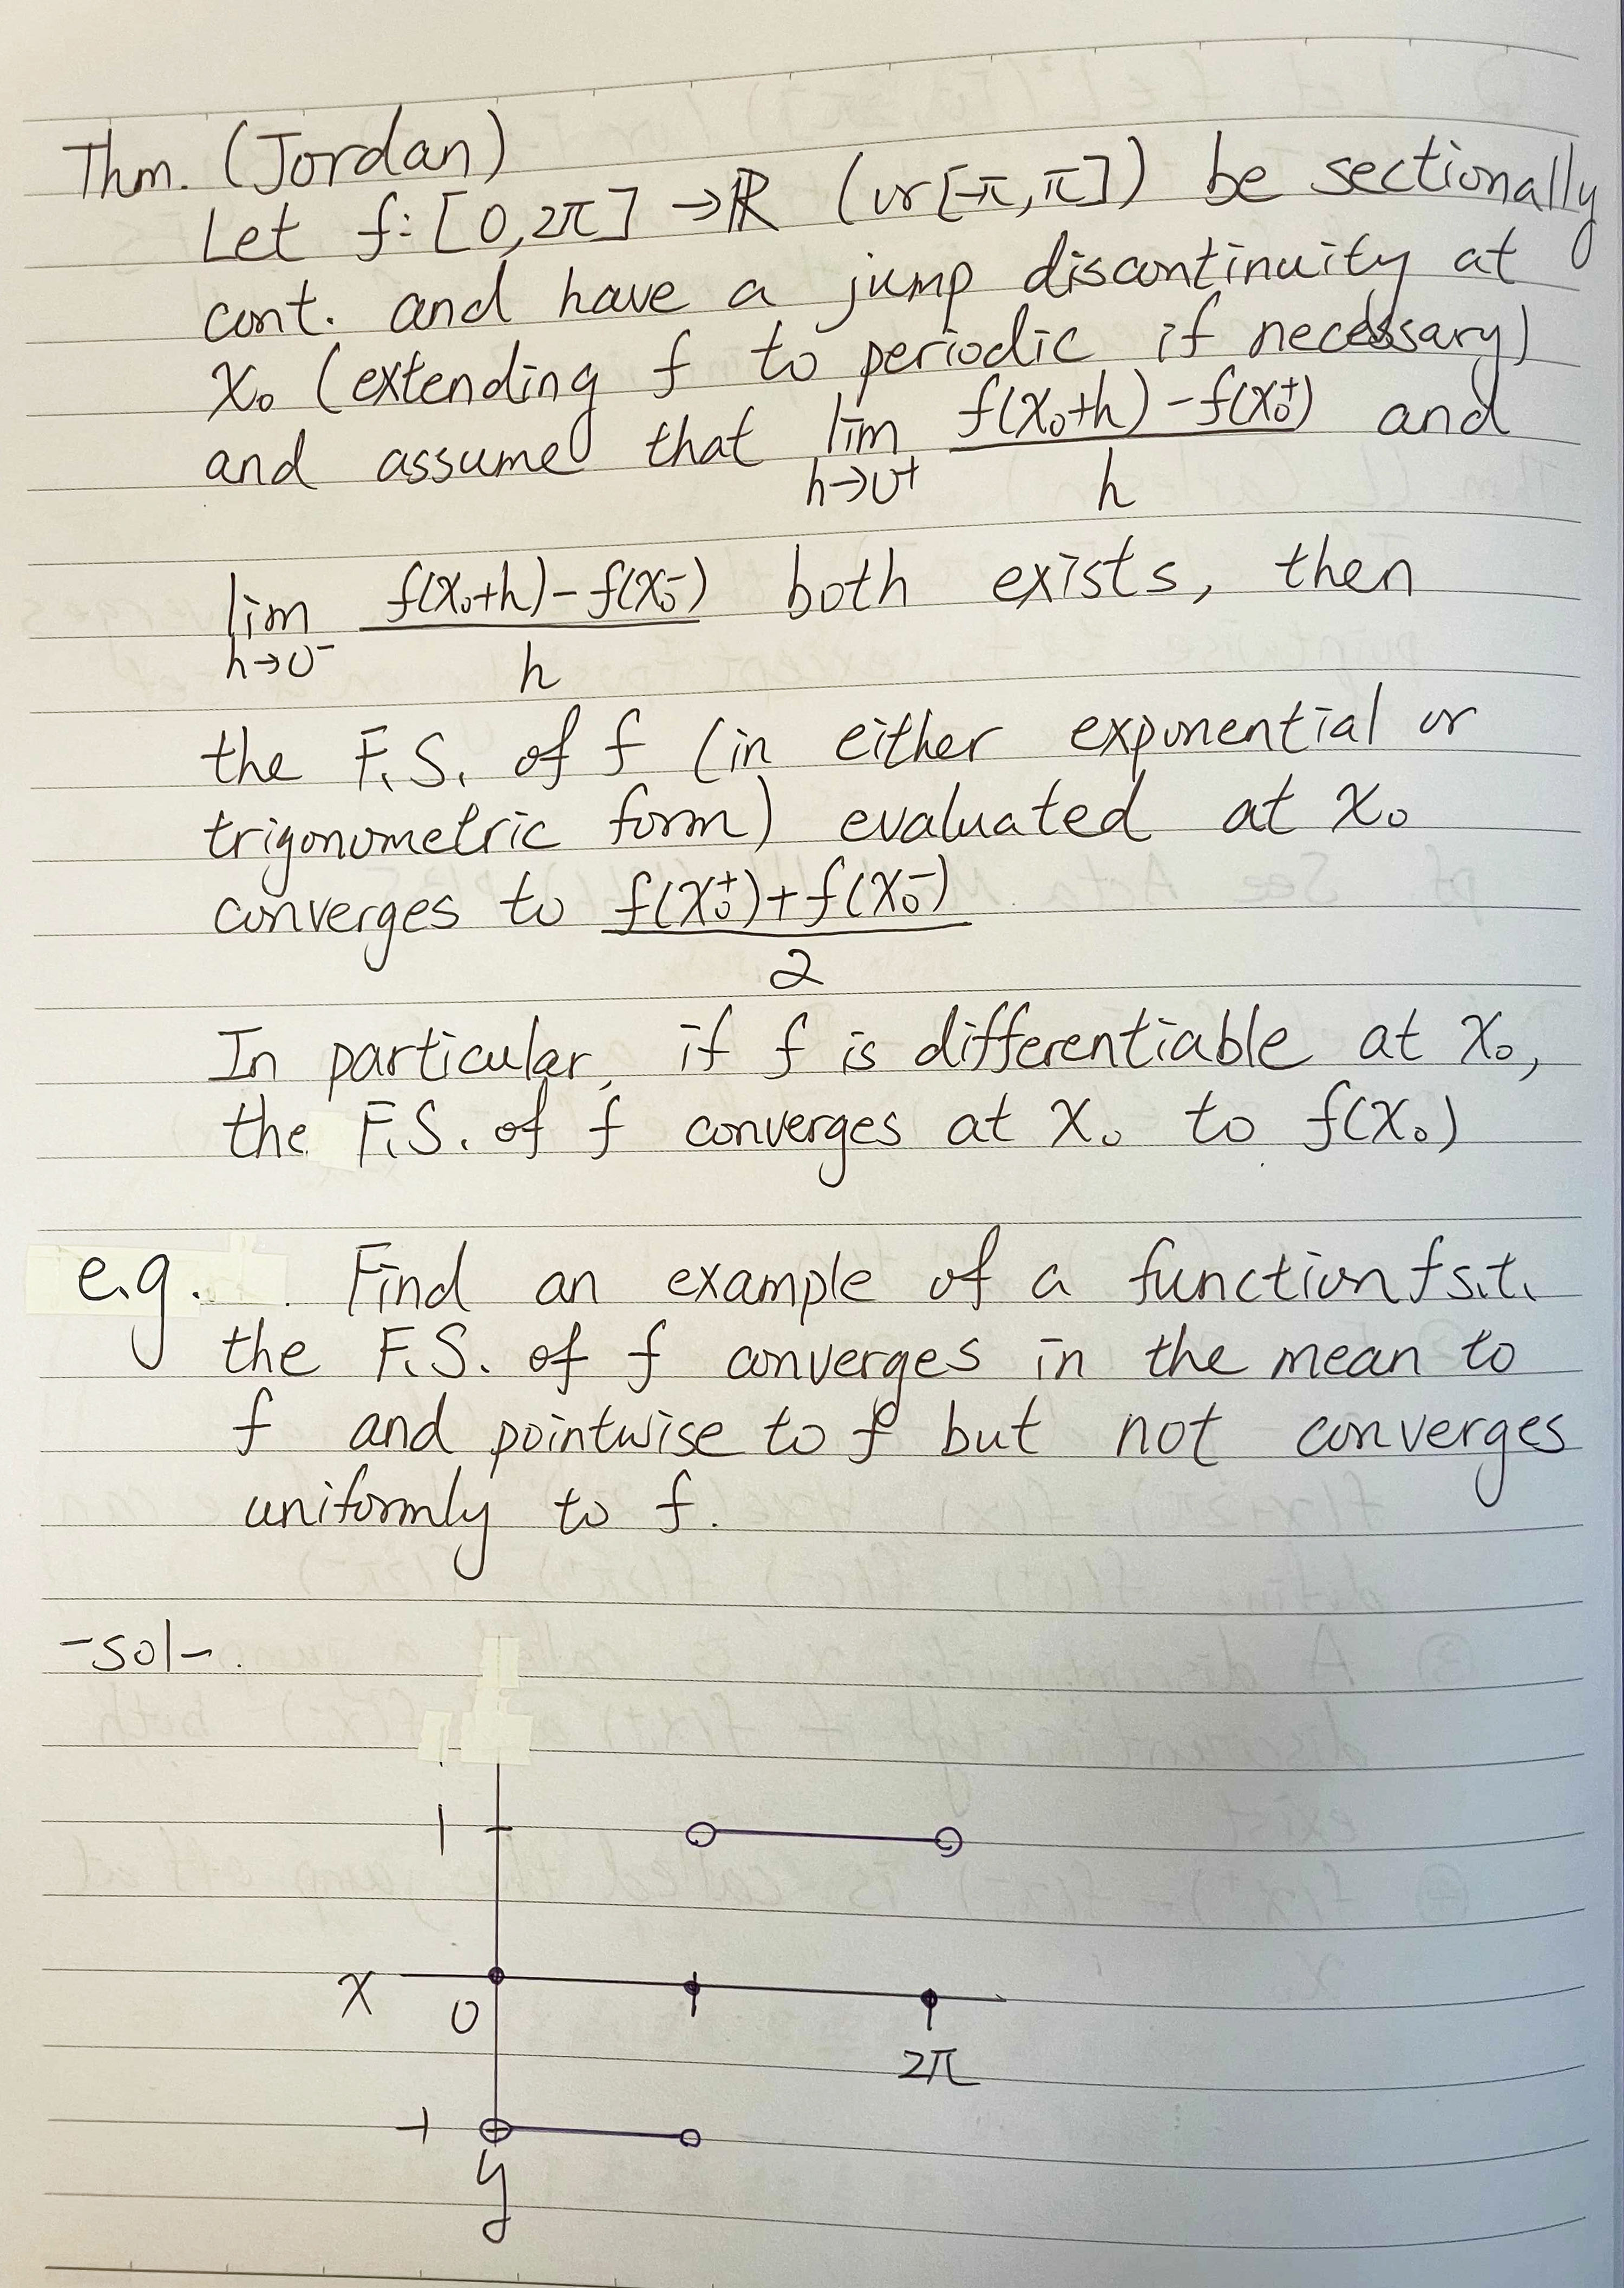 Thm. (Jordan)
Let f: [0, 2π] → ℝ (or [-π, π]) be sectionally
cont. and have a jump discontinuity at
x₀ (extending f to periodic if necessary)
and assume that lim_{h→0⁺} (f(x₀+h) - f(x₀⁺))/h and
lim_{h→0⁻} (f(x₀+h) - f(x₀⁻))/h both exists, then
the F.S. of f (in either exponential or
trigonometric form) evaluated at x₀
converges to (f(x₀⁺) + f(x₀⁻))/2
In particular, if f is differentiable at x₀,
the F.S. of f converges at x₀ to f(x₀)
e.g. Find an example of a function f s.t.
the F.S. of f converges in the mean to
f and pointwise to f but not converges
uniformly to f.
-sol-.
1
x 0
2π
-1
y